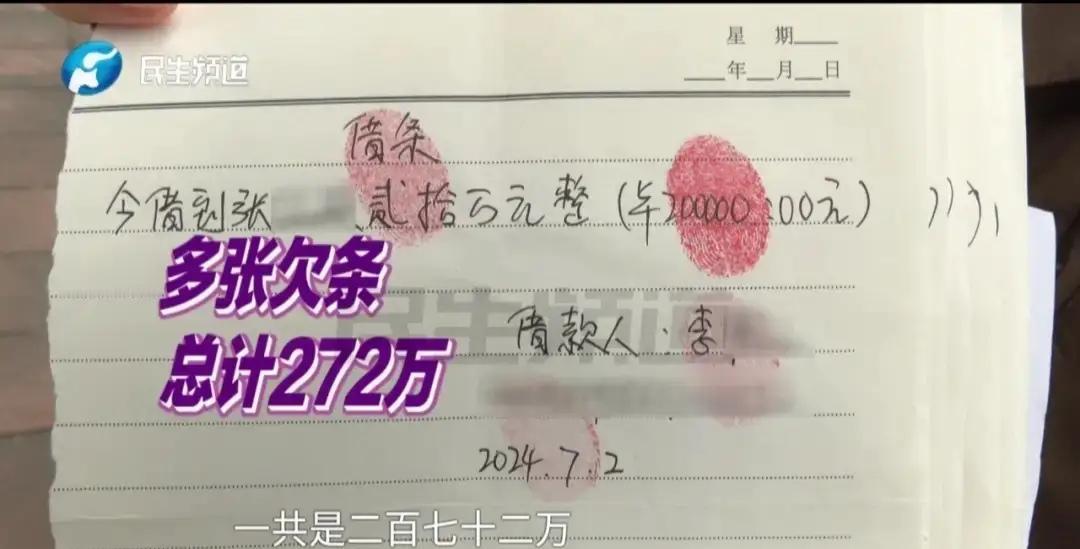 民生频道
星 期____
____年___月___日
借条
今借到张 贰拾万元整(¥200000.00元)
多张欠条
总计272万
民生频道
借款人:李
2024.7.2
一共是二百七十二万